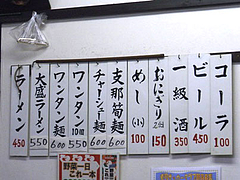 コーラ 100
ビール 450
一級酒 350
おにぎり 2個 150
めし(小) 100
支那筍麺 600
チャーシュー麺 600
ワンタン 10個 550
ワンタン麺 600
大盛ラーメン 550
ラーメン 450
野菜一日
これ一本